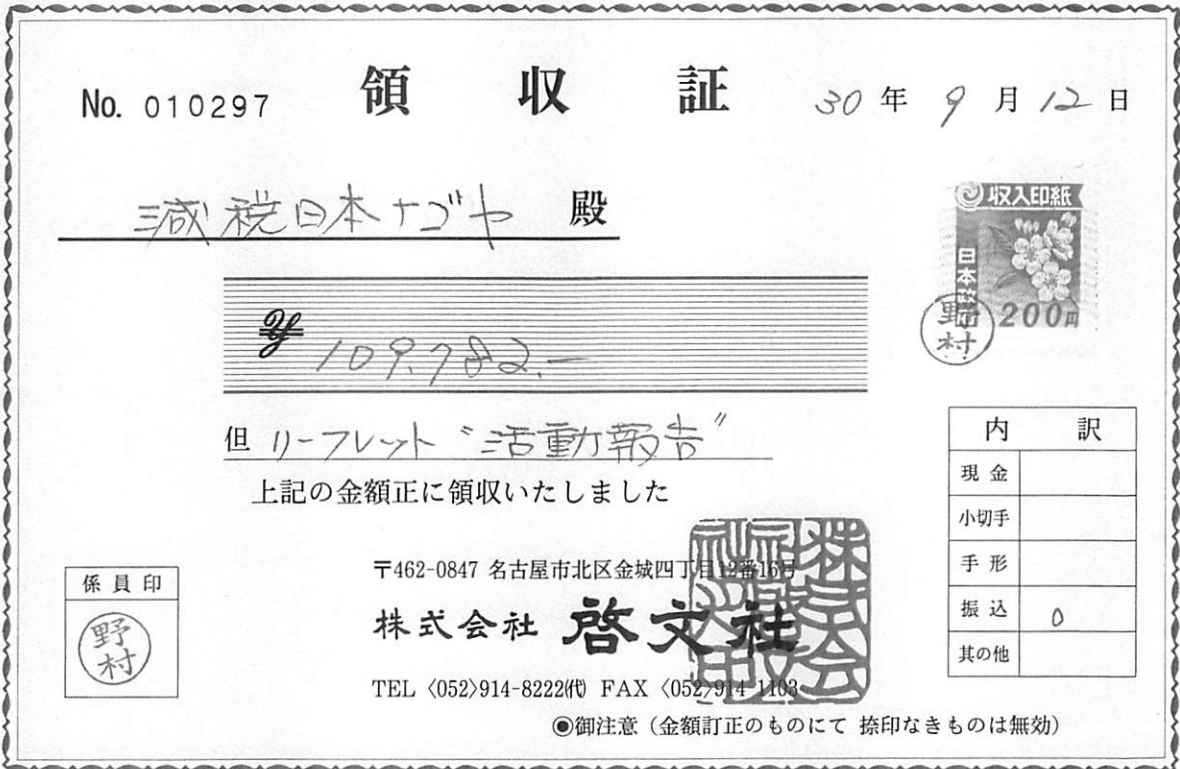 No. 010297 領収証 30年9月12日
減税日本ナゴヤ 殿
収入印紙
200円
野村
¥109,782.-
但 リーフレット“活動報告”
上記の金額正に領収いたしました
内訳
現金
小切手
手形
振込 0
其の他
係員印
野村
〒462-0847 名古屋市北区金城四丁目12番16号
株式会社 啓文社
TEL〈052〉914-8222㈹ FAX〈052〉914-1103
◉御注意(金額訂正のものにて 捺印なきものは無効)